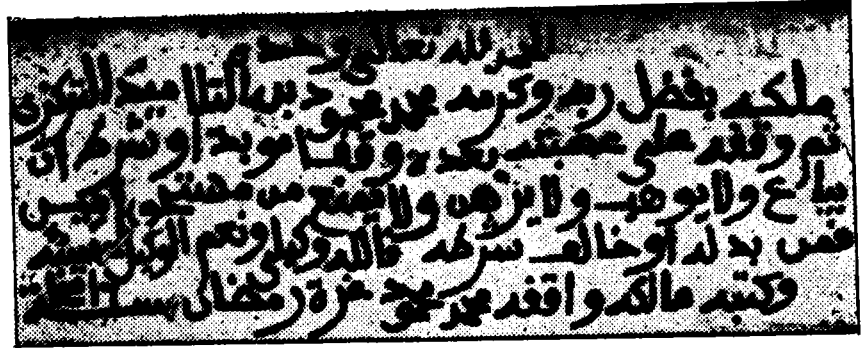 الحمد لله تعالى وحده
ملكه بفضل ربه وكرمه محمد محمود بن التلاميد التركزي
ثم وقفه على عصبته بعده وقفا مؤبدا وشرط ان
يباع ولا يوهب ولا يرهن ولا يمنع من مستحق امين
فمن بدله أو خالف شرطه فالله وكيلي ونعم الوكيل
وكتبه مالكه واقفه محمد محمود غرة رمضان سنة